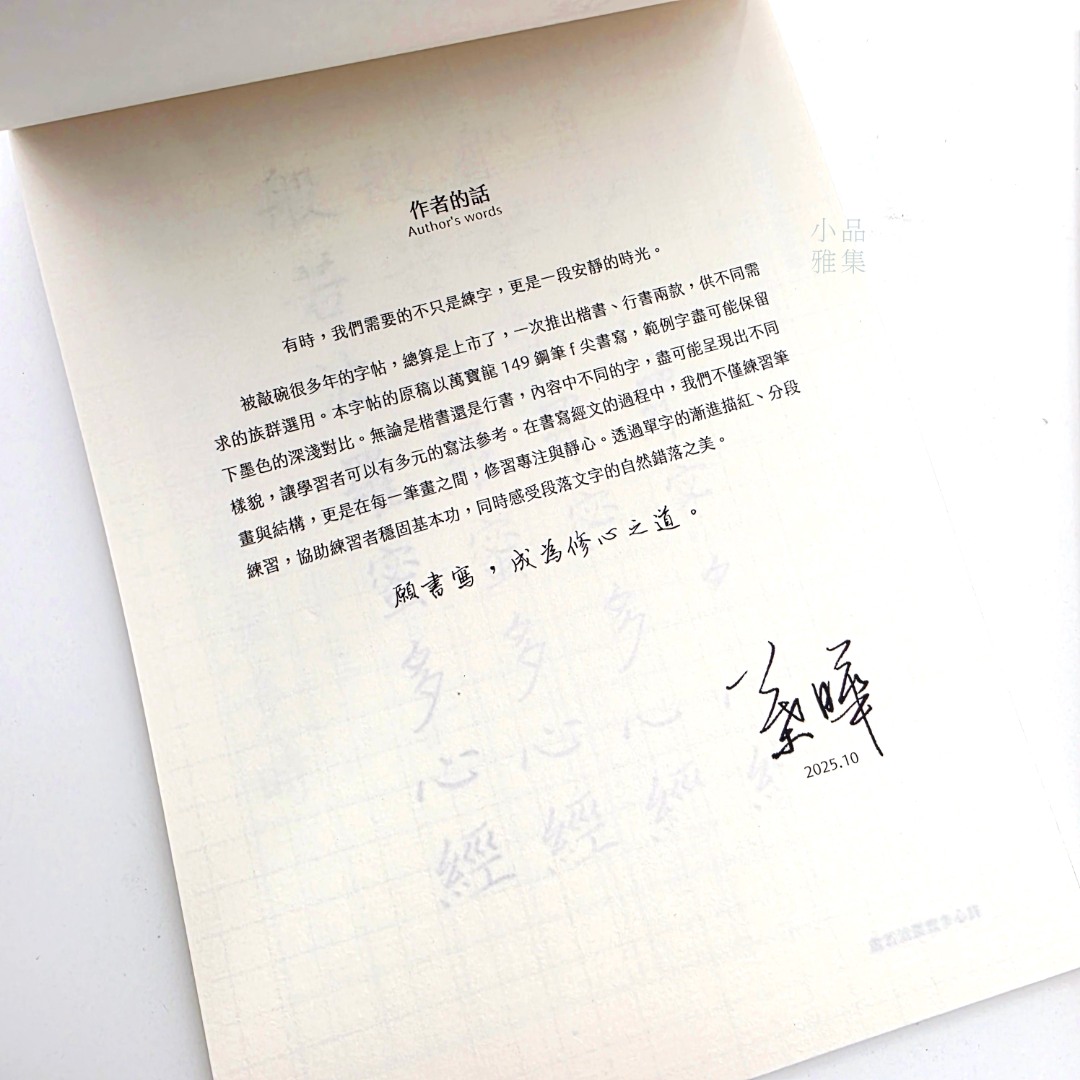 作者的話
Author's words
有時，我們需要的不只是練字，更是一段安靜的時光。
被敲碗很多年的字帖，總算是上市了，一次推出楷書、行書兩款，供不同需
求的族群選用。本字帖的原稿以萬寶龍 149 鋼筆 f 尖書寫，範例字盡可能保留
下墨色的深淺對比。無論是楷書還是行書，內容中不同的字，盡可能呈現出不同
樣貌，讓學習者可以有多元的寫法參考。在書寫經文的過程中，我們不僅練習筆
畫與結構，更是在每一筆畫之間，修習專注與靜心。透過單字的漸進描紅、分段
練習，協助練習者穩固基本功，同時感受段落文字的自然錯落之美。
願書寫，成為修心之道。
2025.10
小品
雅集
多 多 多
心 心 心
經 經 經 經